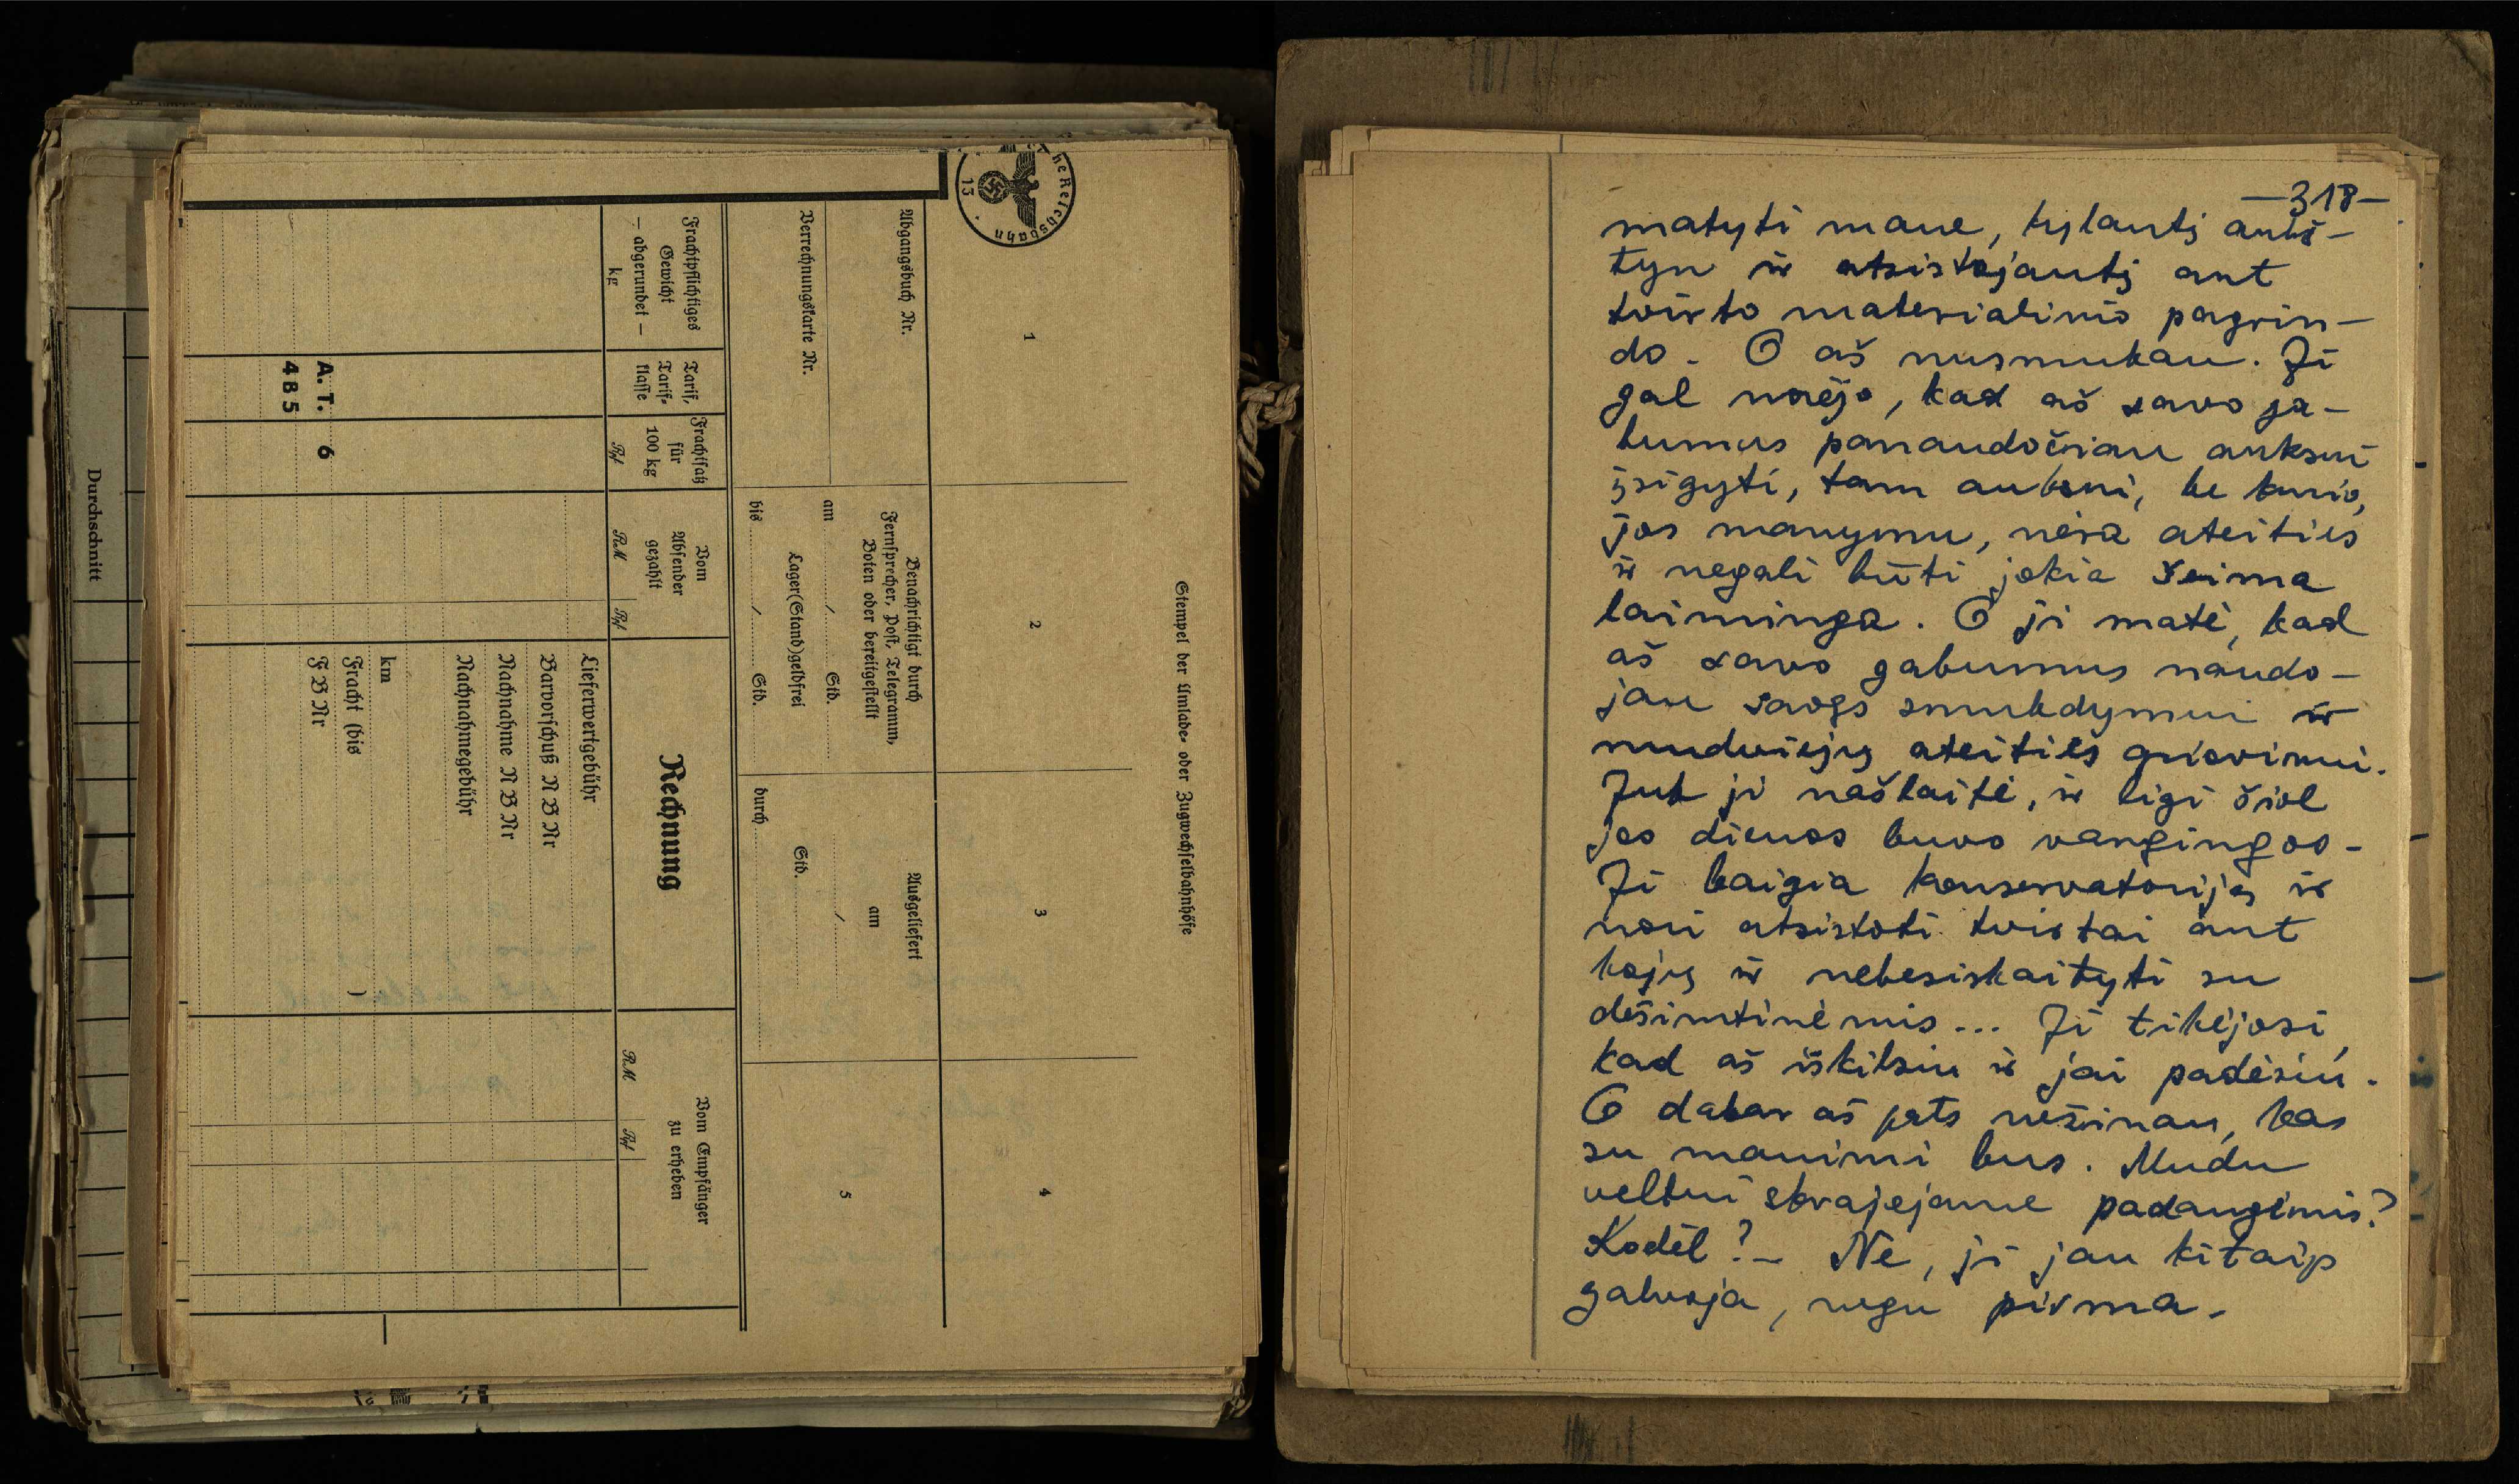 Durchschnitt
he Reichsbahn
13
Stempel der Umlade- oder Zugwechselbahnhöfe
1
2
3
4
Abgangsbuch Nr.
Verrechnungskarte Nr.
Benachrichtigt durch
Fernsprecher, Post, Telegramm,
Boten oder bereitgestellt
am / Std.
Lager(Stand)geldfrei
bis / Std.
Ausgeliefert
am
/
Std.
durch
5
Frachtpflichtiges
Gewicht
— abgerundet —
kg
Tarif,
Tarif-
klasse
Frachtsatz
für
100 kg
Rpf
Vom
Absender
gezahlt
RM Rpf
Rechnung
Vom Empfänger
zu erheben
RM Rpf
Lieferwertgebühr
Barvorschuß N B Nr
Nachnahme N B Nr
Nachnahmegebühr
km
Fracht (bis )
F B Nr
A. T. 6
4 8 5
—318—
matyti mane, kylantį aukš-
tyn ir atsistojantį ant
tvirto materialinio pagrin-
do. O aš nusmukau. Ji
gal norėjo, kad aš savo ga-
bumus panaudočiau auksui
įsigyti, tam auksui, be kurio,
jos manymu, nėra ateities
ir negali būti jokia šeima
laiminga. O ji matė, kad
aš savo gabumus naudo-
jau savęs smukdymui ir
mudviejų ateities griovimui.
Juk ji našlaitė, ir ligi šiol
jos dienos buvo vargingos.
Ji baigia konservatoriją ir
nori atsistoti tvirtai ant
kojų ir nebesiskaityti su
dešimtinėmis... Ji tikėjosi,
kad aš iškilsiu ir jai padėsiu.
O dabar aš pats nežinau, kas
su manimi bus. Mudu
veltui skrajojame padangėmis?
Kodėl? — Ne, ji jau kitaip
galvoja, negu pirma.